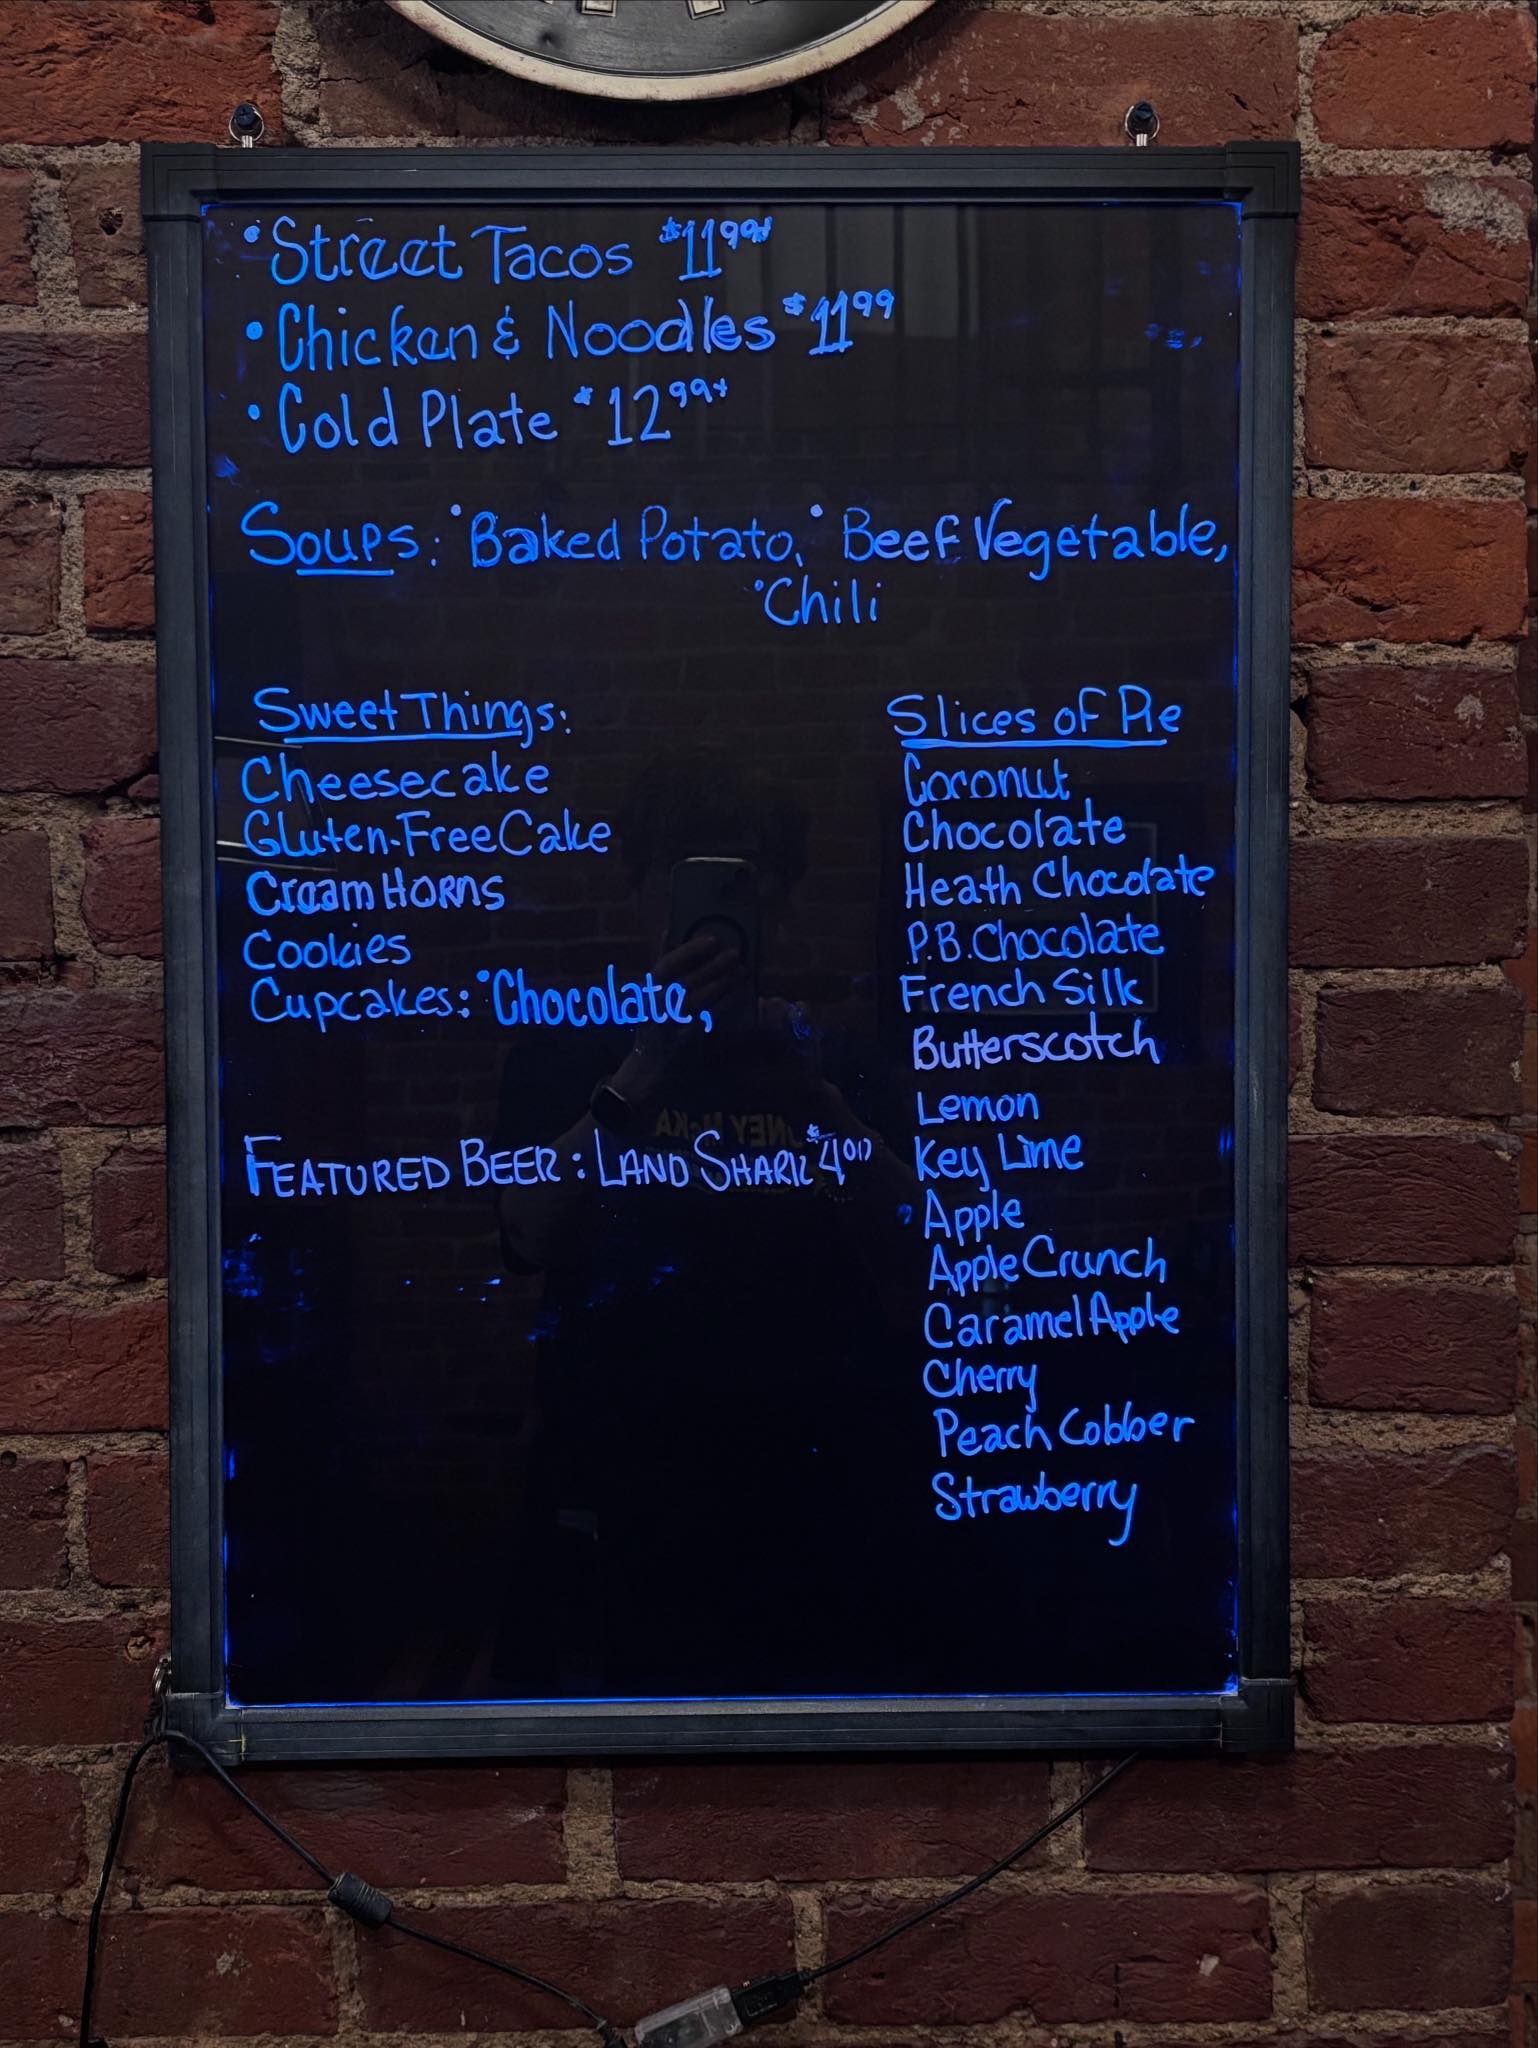 • Street Tacos $11.99+
• Chicken & Noodles $11.99
• Cold Plate $12.99+
Soups: • Baked Potato, • Beef Vegetable,
• Chili
Sweet Things:
Cheesecake
Gluten-Free Cake
Cream Horns
Cookies
Cupcakes: • Chocolate,
FEATURED BEER: LAND SHARK $4.00
Slices of Pie
Coconut
Chocolate
Heath Chocolate
P.B. Chocolate
French Silk
Butterscotch
Lemon
Key Lime
Apple
Apple Crunch
Caramel Apple
Cherry
Peach Cobber
Strawberry